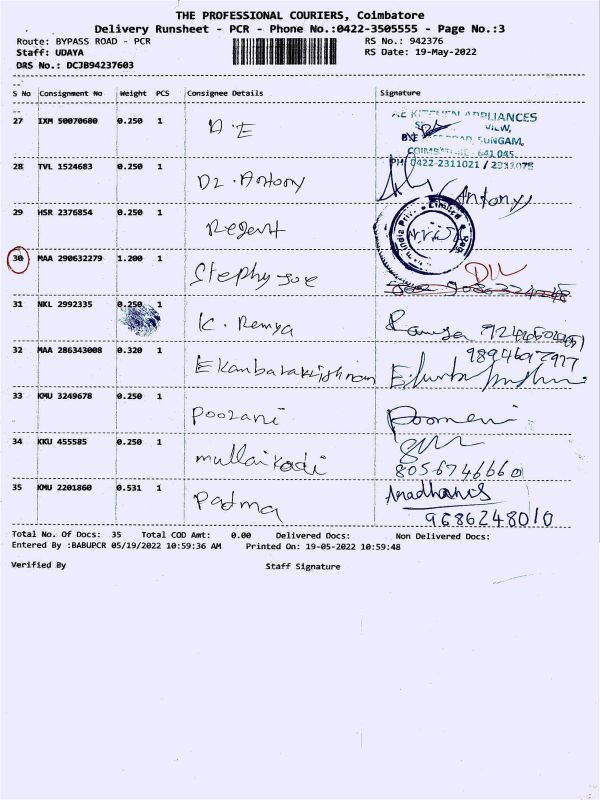 THE PROFESSIONAL COURIERS, Coimbatore
Delivery Runsheet - PCR - Phone No.:0422-3505555 - Page No.:3
Route: BYPASS ROAD - PCR
Staff: UDAYA
DRS No.: DCJB94237603
RS No.: 942376
RS Date: 19-May-2022
S No Consignment No Weight PCS Consignee Details Signature
27 IXM 50070680 0.250 1 A.E
KITCHEN APPLIANCES
VIEW,
ROAD, SUNGAM,
COIMBATORE - 641 045.
PH: 0422-2311021 /
28 TVL 1524683 0.250 1 Dr. Antony (Antony)
29 HSR 2376854 0.250 1 Regent
30 MAA 290632279 1.200 1 Stephy Joe DIL
31 NKL 2992335 0.250 1 K. Remya Ramya
32 MAA 286343008 0.320 1 Ekanbarakrishnan 9894617977
33 KMU 3249678 0.250 1 Poorani
34 KKU 455585 0.250 1 mullaikodi 8056746660
35 KMU 2201860 0.531 1 Padma 9686248010
Total No. Of Docs: 35 Total COD Amt: 0.00 Delivered Docs: Non Delivered Docs:
Entered By :BABUPCR 05/19/2022 10:59:36 AM Printed On: 19-05-2022 10:59:48
Verified By Staff Signature